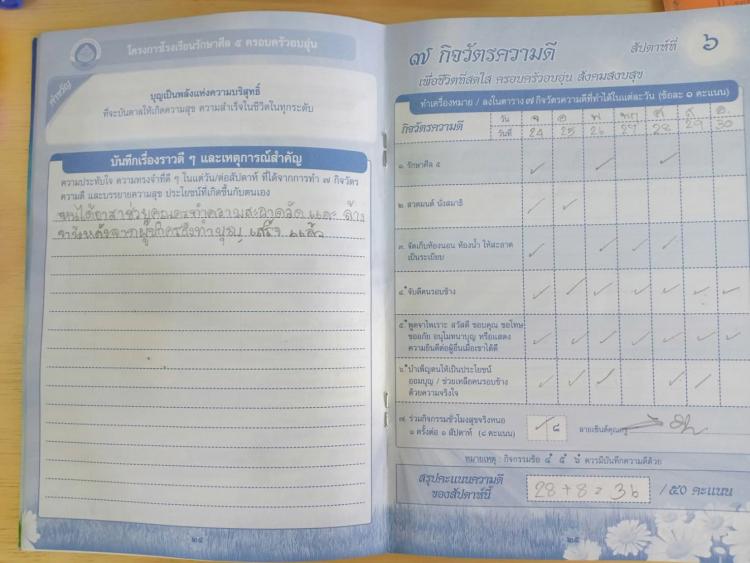 โครงการโรงเรียนรักษาศีล ๕ ครอบครัวอบอุ่น
คำขวัญ
บุญเป็นพลังแห่งความบริสุทธิ์
ที่จะบันดาลให้เกิดความสุข ความสำเร็จในชีวิตในทุกระดับ
บันทึกเรื่องราวดี ๆ และเหตุการณ์สำคัญ
ความประทับใจ ความทรงจำที่ดี ๆ ในแต่วัน/ต่อสัปดาห์ ที่ได้จากการทำ ๗ กิจวัตร
ความดี และบรรยายความสุข ประโยชน์ที่เกิดขึ้นกับตนเอง
ทำความสะอาดวัด และ ล้าง
ทำบุญ เสร็จ แล้ว
๒๔
๗ กิจวัตรความดี สัปดาห์ที่ ๖
เพื่อชีวิตที่สดใส ครอบครัวอบอุ่น สังคมสงบสุข
ทำเครื่องหมาย / ลงในตาราง ๗ กิจวัตรความดีที่ทำได้ในแต่ละวัน (ข้อละ ๑ คะแนน)
กิจวัตรความดี
วัน จ อ พ พฤ ศ ส อ
วันที่ 24 25 26 27 28 29 30
๑. รักษาศีล ๕
๒. สวดมนต์ นั่งสมาธิ
๓. จัดเก็บห้องนอน ห้องน้ำ ให้สะอาด
เป็นระเบียบ
๔. จับดีคนรอบข้าง
๕. พูดจาไพเราะ สวัสดี ขอบคุณ ขอโทษ
ขออภัย อนุโมทนาบุญ หรือแสดง
ความยินดีต่อผู้อื่นเมื่อเขาได้ดี
๖. บำเพ็ญตนให้เป็นประโยชน์
ออมบุญ / ช่วยเหลือคนรอบข้าง
ด้วยความจริงใจ
๗. ร่วมกิจกรรมชั่วโมงสุขจริงหนอ
๑ ครั้งต่อ ๑ สัปดาห์ (๘ คะแนน)
/ ๘
ลายเซ็นต์คุณครู
หมายเหตุ : กิจกรรมข้อ ๔ ๕ ๖ ควรมีบันทึกความดีด้วย
สรุปคะแนนความดี
ของสัปดาห์นี้
28 + 8 = 36 / ๕๐ คะแนน
๒๕